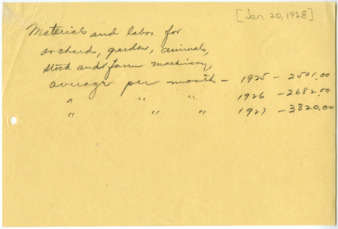 [Jan. 20, 1928]
Materials and labor for
orchard, garden, animals,
stock and farm machinery
average per month - 1925 - 2501.00
" " " 1926 - 2682.00
" " " 1927 - 3820.00